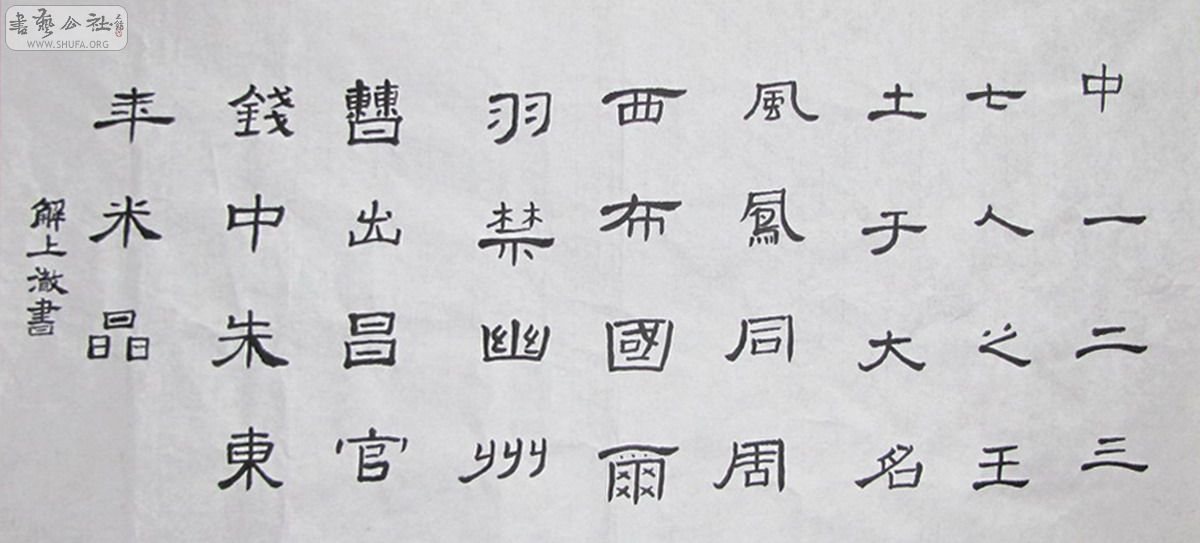 書藝公社
WWW.SHUFA.ORG
中一二三
七人之王
土于大名
風鳳同周
西布國爾
羽禁幽州
曹出昌官
錢中朱東
年米晶
解上澂書